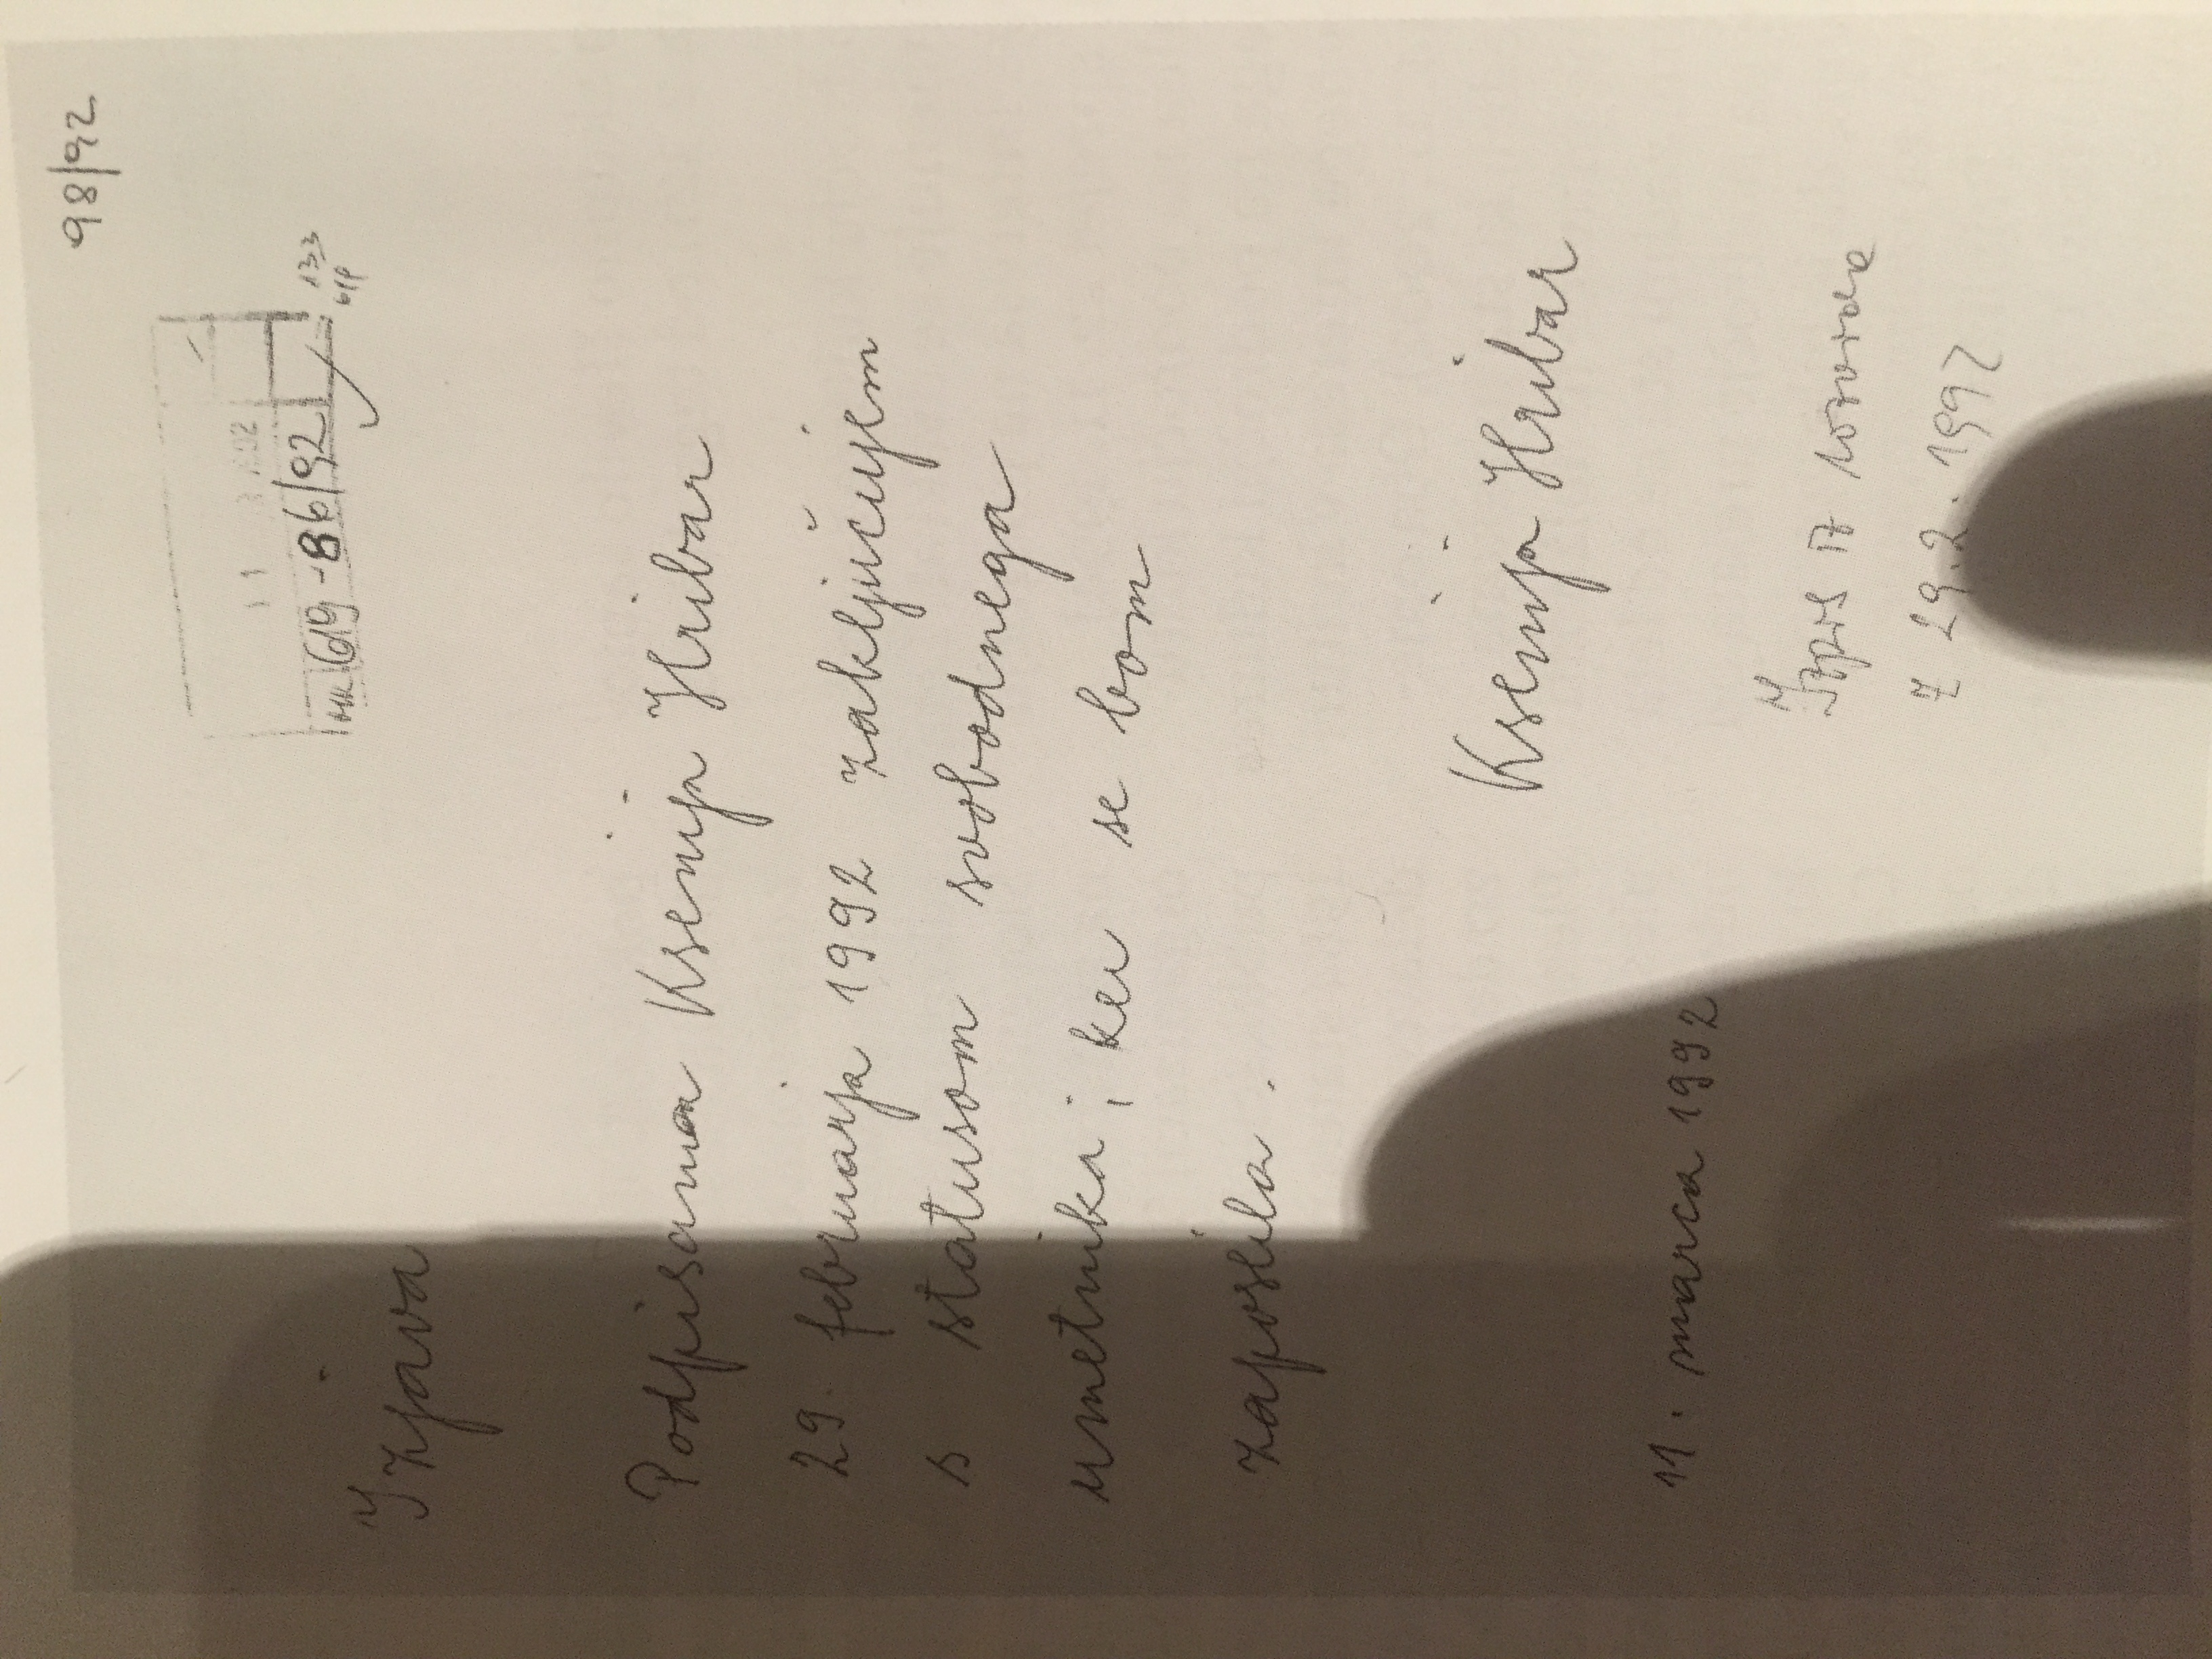 98/92
619-86/92
133
Izjava
Podpisana Ksenija Hribar
29. februarja 1992 zaključujem
s statusom svobodnega
umetnika, ker se bom
zaposlila.
Ksenija Hribar
11. marca 1992
Izpis iz
z 29.2.1992